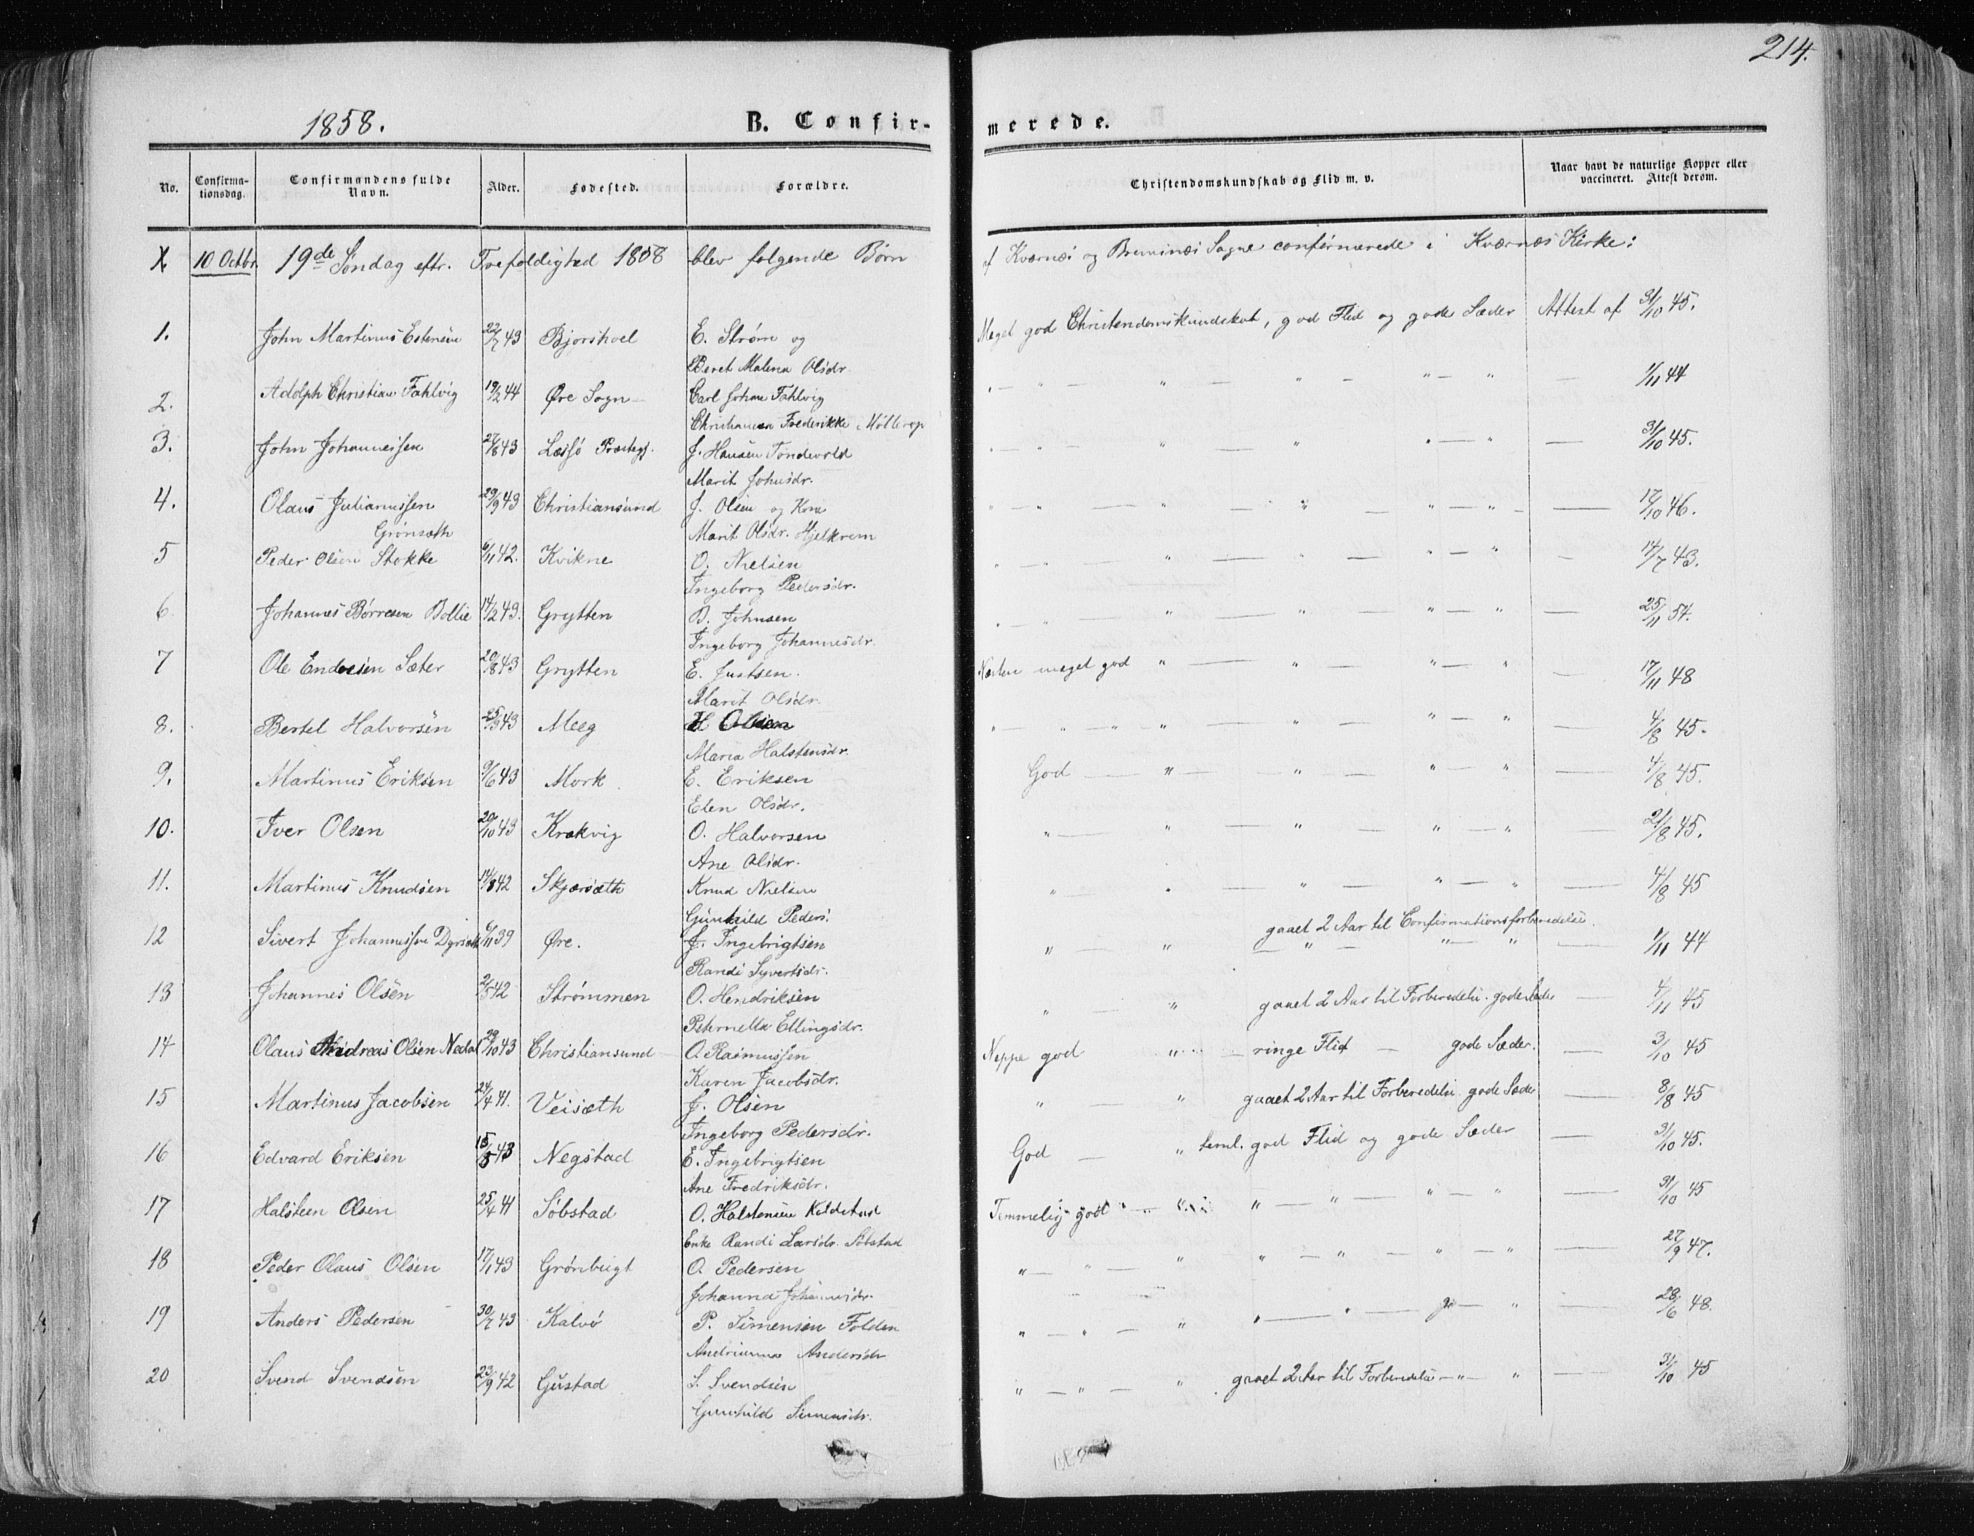 214.
1858.
B. Confirmerede.
No. Confirmationsdag. Confirmandens fulde Navn. Alder. Fødested. Forældre. Christendomskundskab og Flid m. v. Naar havt de naturlige Kopper eller vaccineret. Attest derom.
X 10 Octbr. 19de Søndag eftr. Trefoldighed 1858 blev følgende Børn af Kværnæs og Bremsnæs Sogne confirmerede i Kværnæs Kirke:
1. John Martinus Estensen 22/7 43 E. Strøm og Meget god Christendomskundskab, god Flid og gode Sæder Attest af 31/10 45.
Beret Malena Olsdr.
2. Adolph Christian Fahlvig 19/2 44 Øre Sogn Carl Johan Fahlvig " — " — " — " — " — " — 1/11 44
Christiansa Frederikke Møllerop
3. John Johannessen 27/8 43 Læsjø Præstegj. J. Hansen Tondevold " — " — " " — " — 31/10 45.
Marit Johnsdr.
4. Olaus Julianussen 29/9 43 Christiansund J. Olsen og Kone " — " — " — " — " — " — 17/10 46.
Grønsæth Marit Olsdr. Hjelkrem
5 Peder Olsen Stokke 6/11 42. Kvikne O. Nielsen " — " — " — " — " — " — 14/7 43.
Ingeborg Pedersdr.
6 Johannes Børresen Bollie 14/2 43. Grytten B. Johnsen " — " — " — " — " — " — 25/11 54.
Ingeborg Johannesdr.
7 Ole Endresen Sæter 20/8 43 Grytten E. Justsen. Næsten meget god " — " — " — " — 17/11 48
Marit Olsdr.
8. Bertel Halvorsen 25/3 43 Meeg H Olsen " — " — " — " — " — " — " — 4/8 45.
Maria Halstensdr.
9. Martinus Eriksen 9/6 43 Mork E. Eriksen God — " — " — " — " — 4/8 45.
Elen Olsdr.
10. Iver Olsen 20/10 43 Krækvig O. Halvorsen " — " — " — " — " — 21/8 45.
Ane Olsdr.
11. Martinus Knudsen 14/8 42 Skjærsæth Knud Nielsen " — " — " — " — " — 4/8 45
Gunhild Peders.
12 Sivert Johannessen Dyrsæth 6/11 39 Øre. J. Ingebrigtsen " — " gaaet 2 Aar til Confirmationsforberedelse. — " — " — " — 1/11 44
Randi Syvertsdr.
13 Johannes Olsen 2/5 42 Strømmen O. Hendriksen " — " gaaet 2 Aar til Forberedelse. gode Sæder — 4/11 45
Pehrnella Ellingsdr.
14 Olaus Andreas Olsen Nedal 29/10 43 Christiansund O. Rasmussen Neppe god " — ringe Flid — gode Sæder. — 3/10 45
Karen Jacobsdr.
15 Martinus Jacobsen 24/4 41. Veisæth J. Olsen " — " gaaet 2 Aar til Forberedelse. gode Sæder — 8/8 45
Ingeborg Pedersdr.
16 Edvard Eriksen 15/5 43 Negstad E. Ingebrigtsen God — " teml. god Flid og gode Sæder — 31/10 45.
Ane Fredriksdr.
17 Halsteen Olsen 25/4 41 Søbstad O. Halstensen Temmelig godt " — " — " — " — " — 31/10 45
Enke Randi Larsdr. Søbstad
18 Peder Olaus Olsen 17/1 43 Grønbugt O. Pedersen " — " — " " — " — " — " — 27/9 47.
Johanna Johannesdr.
19 Anders Pedersen 30/7 43 Kalvø P. Simensen Folden " — " — " " — " — " — " — 28/6 48.
Andrianna Andersdr
20 Svend Svendsen 23/9 42 Gustad S. Svendsen " — " — " gaaet 2 Aar til Forberedelse — " — " — 31/10 45
Gunhild Simensdr.